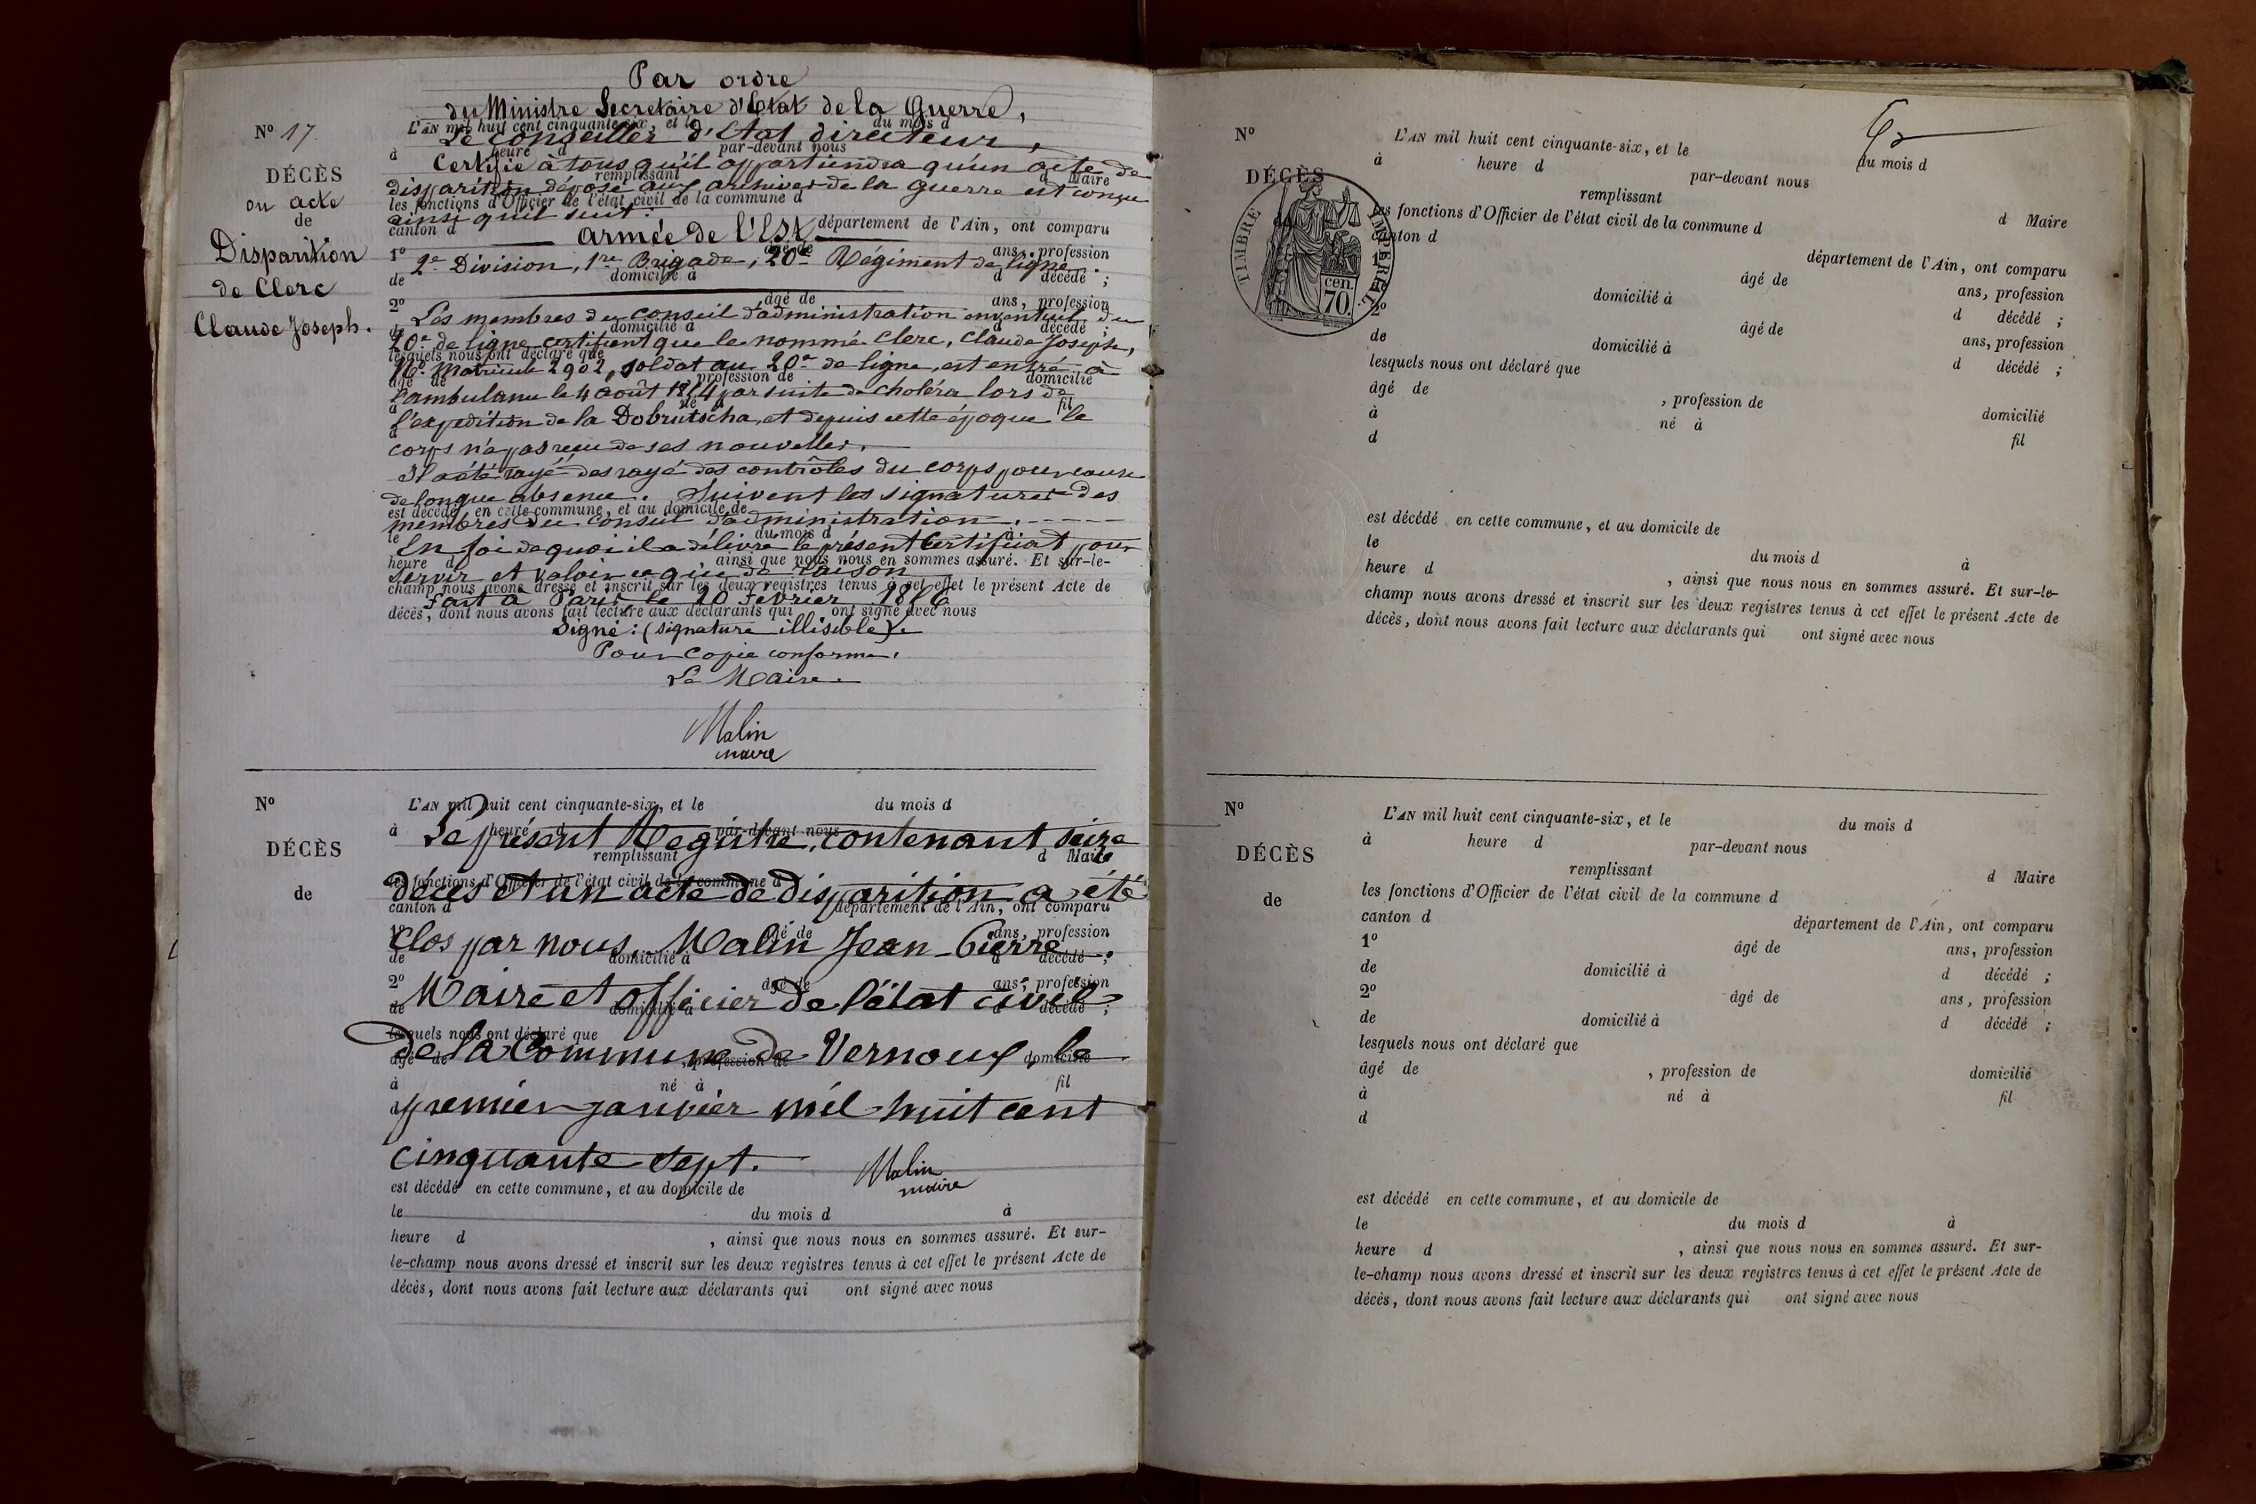 Par ordre
du Ministre Secretaire d'Etat de la Guerre,
N° 17
L'AN mil huit cent cinquante-six, et le du mois d
Le conseiller d'Etat directeur,
à heure d par-devant nous
Certifie à tous qu'il appartiendra qu'un acte de
DÉCÈS
remplissant d Maire
disparition déposé aux archives de la guerre est conçu
ou acte
les fonctions d'Officier de l'état civil de la commune d
ainsi qu'il suit :
de
canton d département de l'Ain, ont comparu
Armée de l'Est
Disparition
1° âgé de ans, profession
2e Division, 1re Brigade, 20e Régiment de ligne.
de domicilié à d décédé ;
de Clerc
2° âgé de ans, profession
Les membres du conseil d'administration éventuel du
Claude Joseph.
de domicilié à d décédé ;
20e de ligne certifient que le nommé Clerc, Claude Joseph,
lesquels nous ont déclaré que
N° Matricule 2902, soldat au 20e de ligne, est entré à
âgé de , profession de domicilié
l'ambulance le 4 août 1854 par suite de choléra lors de
à né à fil
l'expédition de la Dobrutscha, et depuis cette époque le
d
corps n'a pas reçu de ses nouvelles.
Il a été rayé des rayé des contrôles du corps pour cause
de longue absence. Suivent les signatures des
est décédé en cette commune, et au domicile de
membres du conseil d'administration.
le du mois d à
En foi de quoi il a délivré le présent Certificat pour
heure d ainsi que nous nous en sommes assuré. Et sur-le-
servir et valoir ce que de raison
champ nous avons dressé et inscrit sur les deux registres tenus à cet effet le présent Acte de
fait à Paris le 20 février 1856
décès, dont nous avons fait lecture aux déclarants qui ont signé avec nous
Signé : (signature illisible).
Pour copie conforme.
Le Maire.
Malin
maire
N°
L'AN mil huit cent cinquante-six, et le du mois d
à heure d par-devant nous
Le présent Registre, contenant seize
DÉCÈS
remplissant d Maire
les fonctions d'Officier de l'état civil de la commune d
décès et un acte de disparition a été
de
canton d département de l'Ain, ont comparu
1° âgé de ans, profession
clos par nous, Malin Jean-Pierre
de domicilié à d décédé ;
2° âgé de ans, profession
Maire et officier de l'état civil
de domicilié à d décédé ;
lesquels nous ont déclaré que
de la Commune de Vernoux, le
âgé de , profession de domicilié
à né à fil
d
premier janvier mil huit cent
cinquante sept.
Malin
maire
est décédé en cette commune, et au domicile de
le du mois d à
heure d , ainsi que nous nous en sommes assuré. Et sur-
le-champ nous avons dressé et inscrit sur les deux registres tenus à cet effet le présent Acte de
décès, dont nous avons fait lecture aux déclarants qui ont signé avec nous
N°
L'AN mil huit cent cinquante-six, et le du mois d
à heure d par-devant nous
DÉCÈS
remplissant d Maire
les fonctions d'Officier de l'état civil de la commune d
canton d département de l'Ain, ont comparu
TIMBRE IMPÉRIAL
cen.
70.
âgé de ans, profession
domicilié à d décédé ;
2° âgé de ans, profession
de domicilié à d décédé ;
lesquels nous ont déclaré que
âgé de , profession de domicilié
à né à fil
d
est décédé en cette commune, et au domicile de
le du mois d à
heure d , ainsi que nous nous en sommes assuré. Et sur-le-
champ nous avons dressé et inscrit sur les deux registres tenus à cet effet le présent Acte de
décès, dont nous avons fait lecture aux déclarants qui ont signé avec nous
N°
L'AN mil huit cent cinquante-six, et le du mois d
à heure d par-devant nous
DÉCÈS
remplissant d Maire
les fonctions d'Officier de l'état civil de la commune d
de
canton d département de l'Ain, ont comparu
1° âgé de ans, profession
de domicilié à d décédé ;
2° âgé de ans, profession
de domicilié à d décédé ;
lesquels nous ont déclaré que
âgé de , profession de domicilié
à né à fil
d
est décédé en cette commune, et au domicile de
le du mois d à
heure d , ainsi que nous nous en sommes assuré. Et sur-
le-champ nous avons dressé et inscrit sur les deux registres tenus à cet effet le présent Acte de
décès, dont nous avons fait lecture aux déclarants qui ont signé avec nous